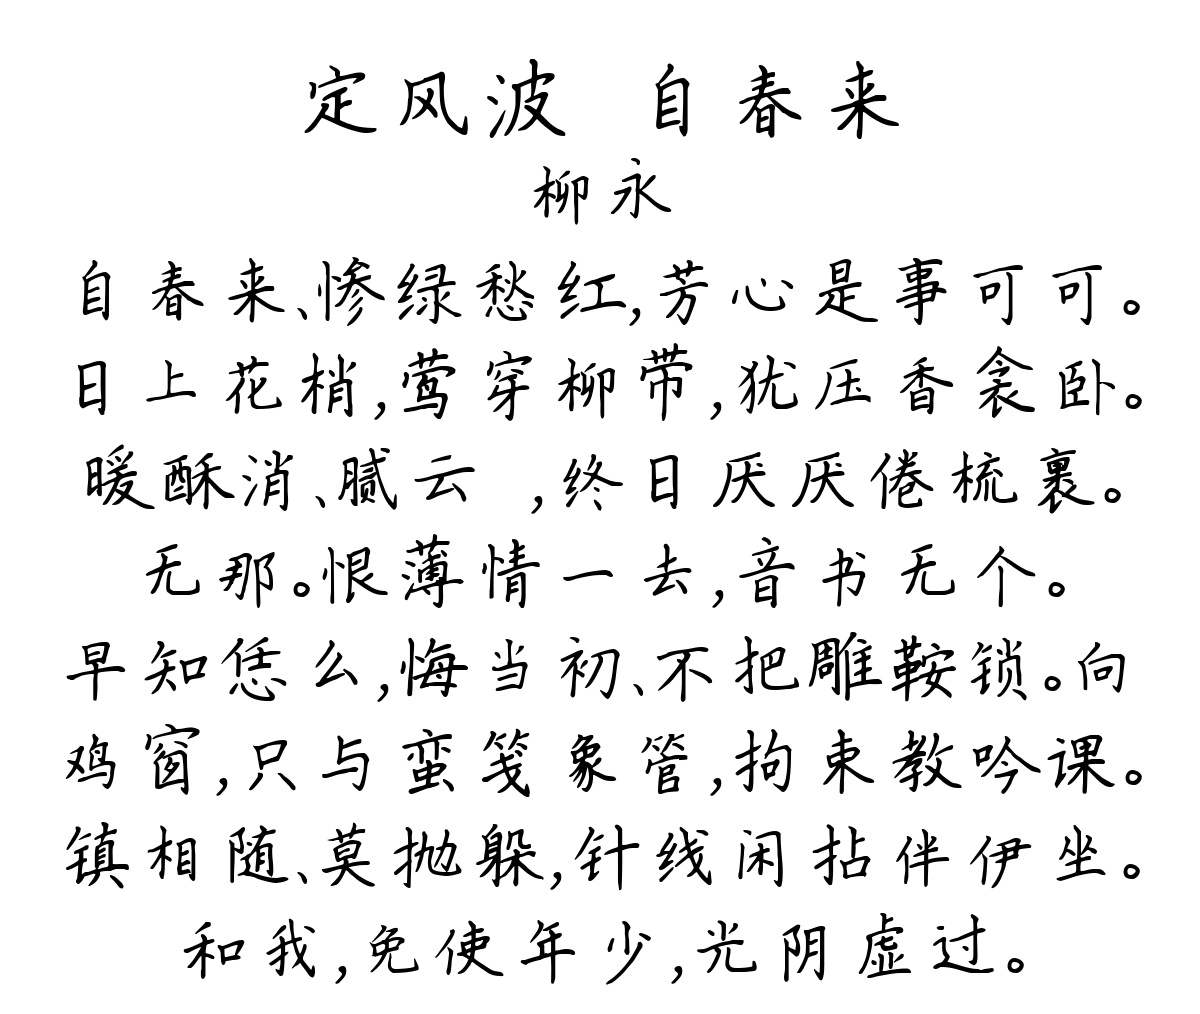 定风波 自春来
柳永
自春来、惨绿愁红,芳心是事可可。
日上花梢,莺穿柳带,犹压香衾卧。
暖酥消、腻云 ,终日厌厌倦梳裹。
无那。恨薄情一去,音书无个。
早知恁么,悔当初、不把雕鞍锁。向
鸡窗,只与蛮笺象管,拘束教吟课。
镇相随、莫抛躲,针线闲拈伴伊坐。
和我,免使年少,光阴虚过。